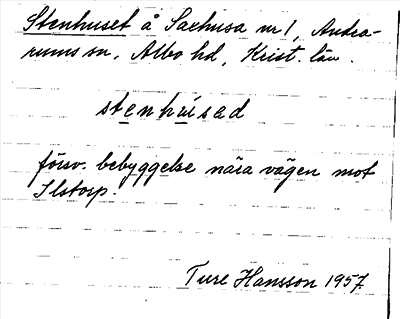 Stenhuset å Saxhusa nr 1, Andra-
rums sn, Albo hd, Krist. län.
stenhúsad
försv. bebyggelse nära vägen mot
Ilstorp.
Ture Hansson 1957